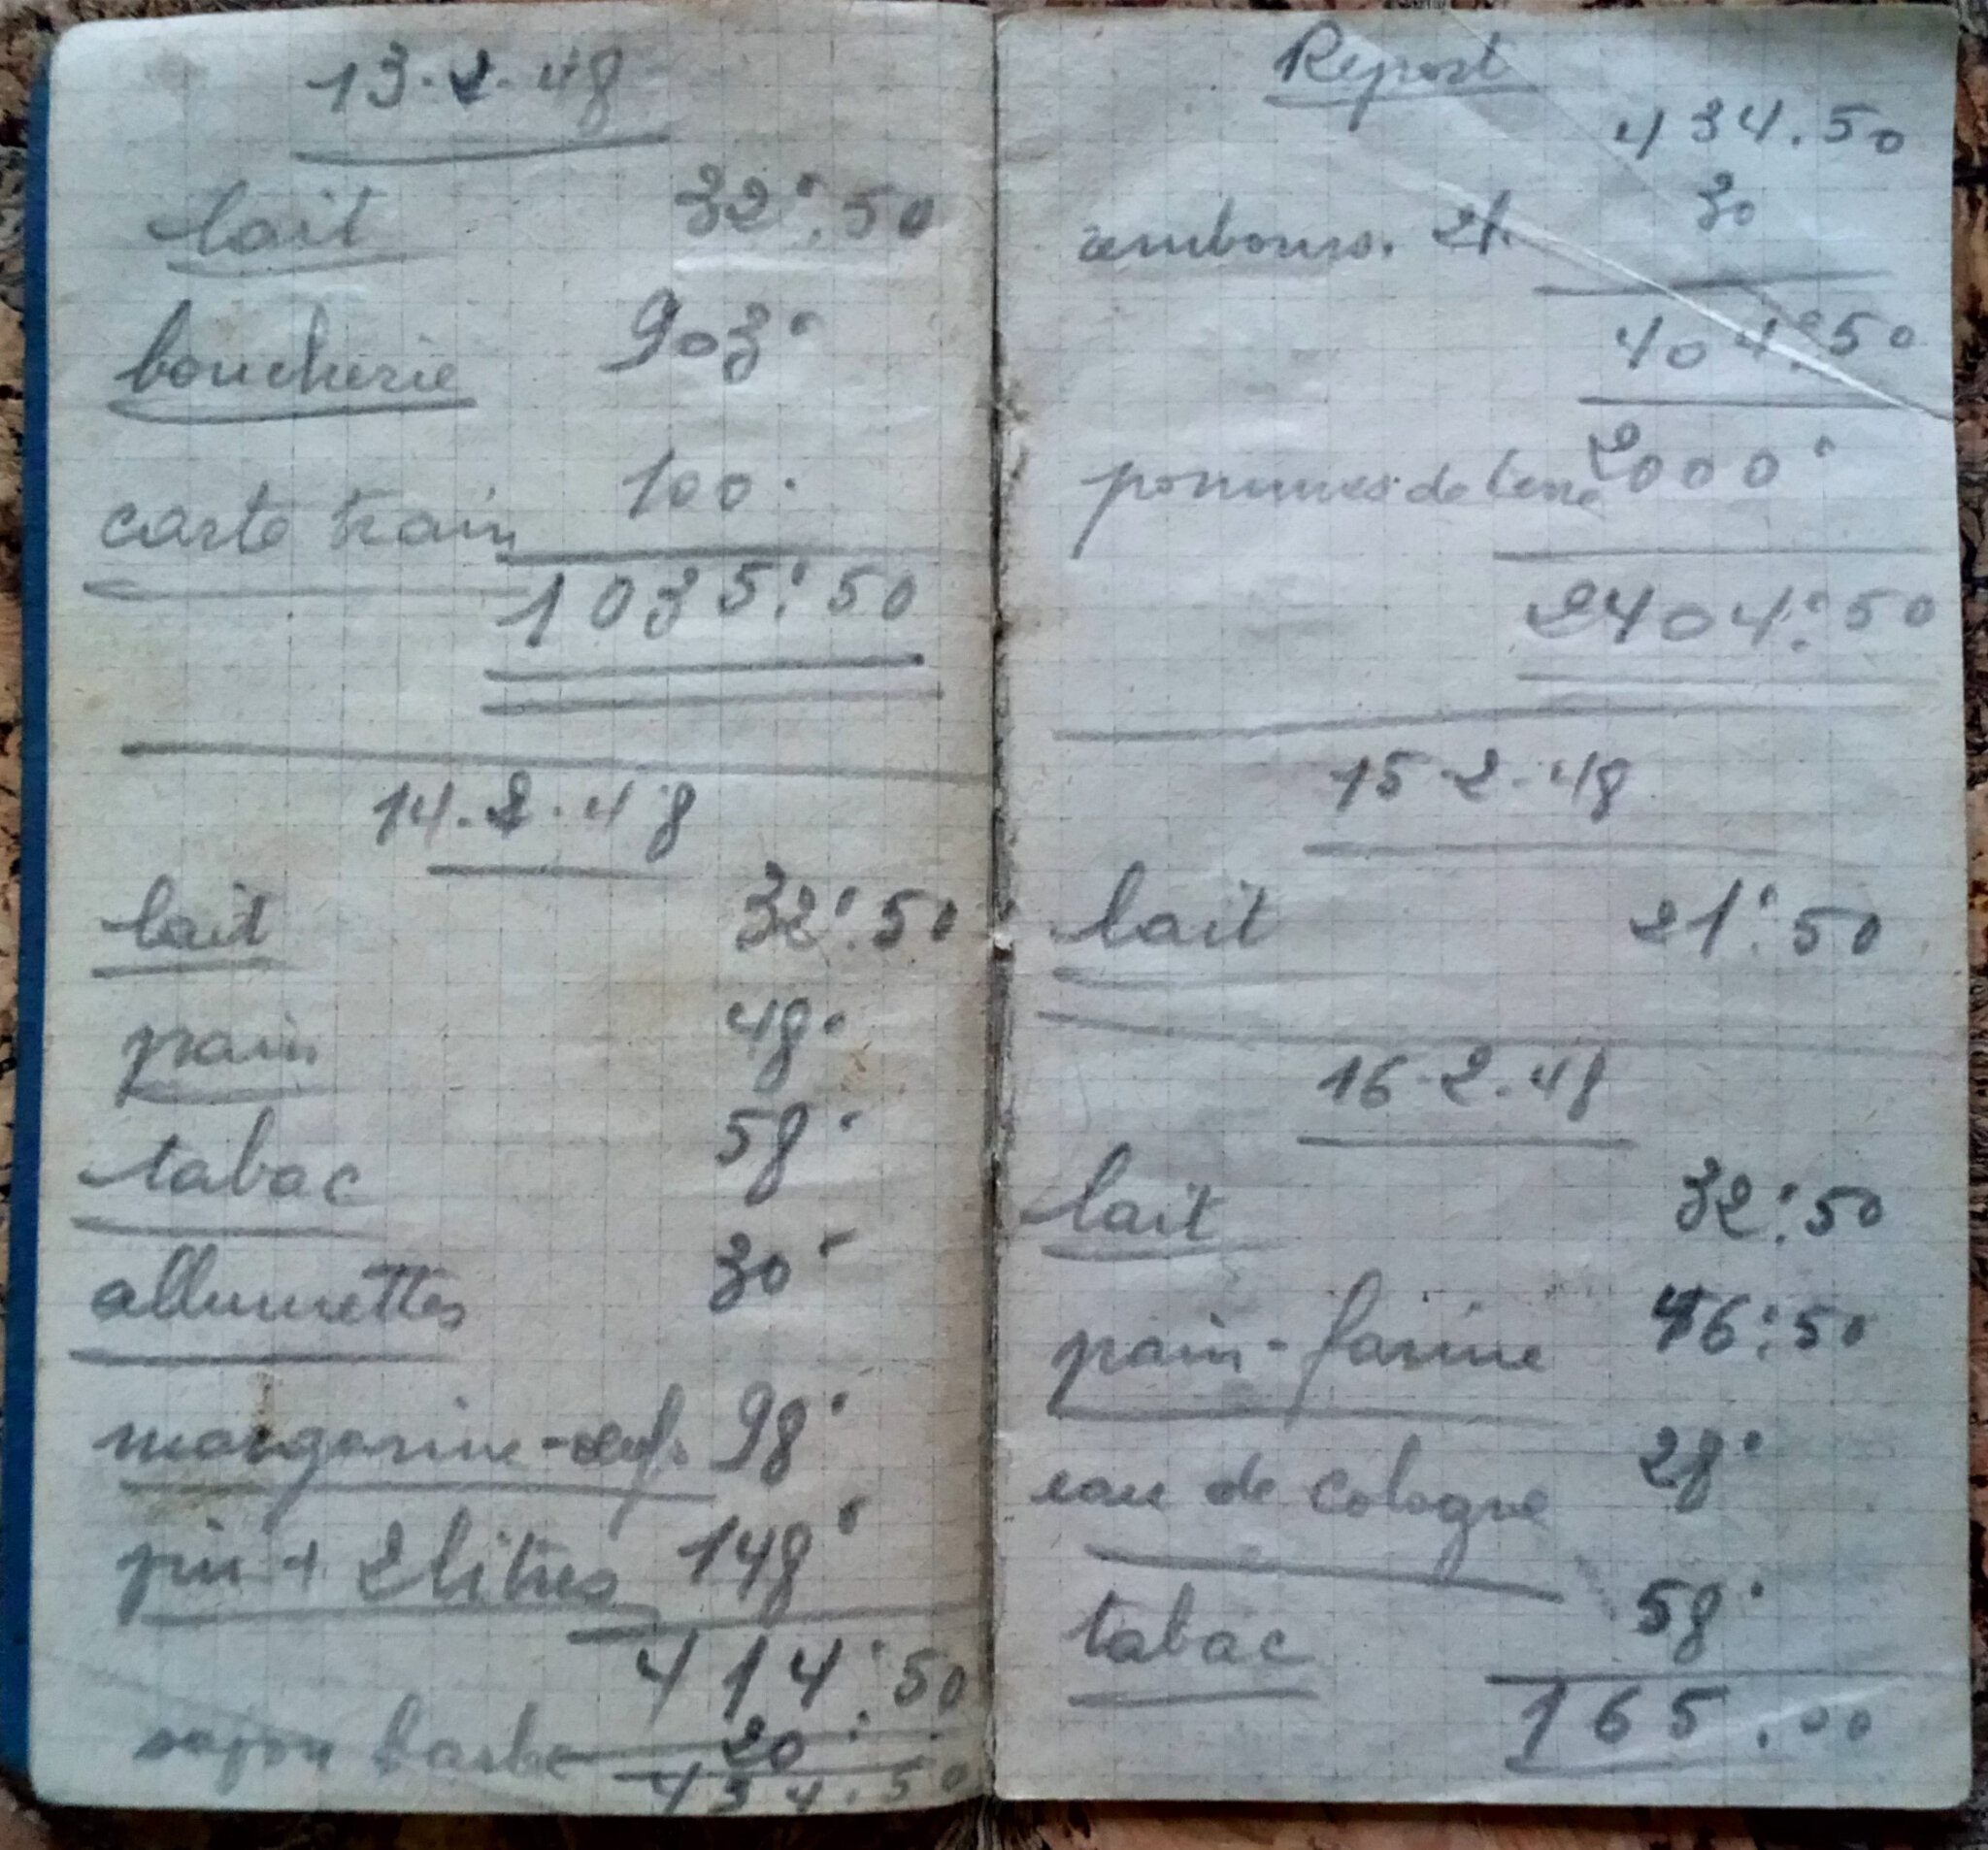 13.2.48
lait 32.50
boucherie 903
carte train 100
1035.50
14.2.48
lait 32.50
pain 48
tabac 58
allumettes 30
margarine - oeufs 98
+ 2 litres 148
414.50
savon barbe 20
434.50
Report
434.50
rembours. 2l. 30
404.50
pommes de terre 2000
2404.50
15.2.48
lait 21.50
16.2.48
lait 32.50
pain - farine 46.50
eau de cologne 28
tabac 58
165.00